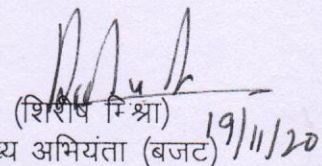 (शिशिष मिश्रा)
य अभियंता (बजट) 19/11/20